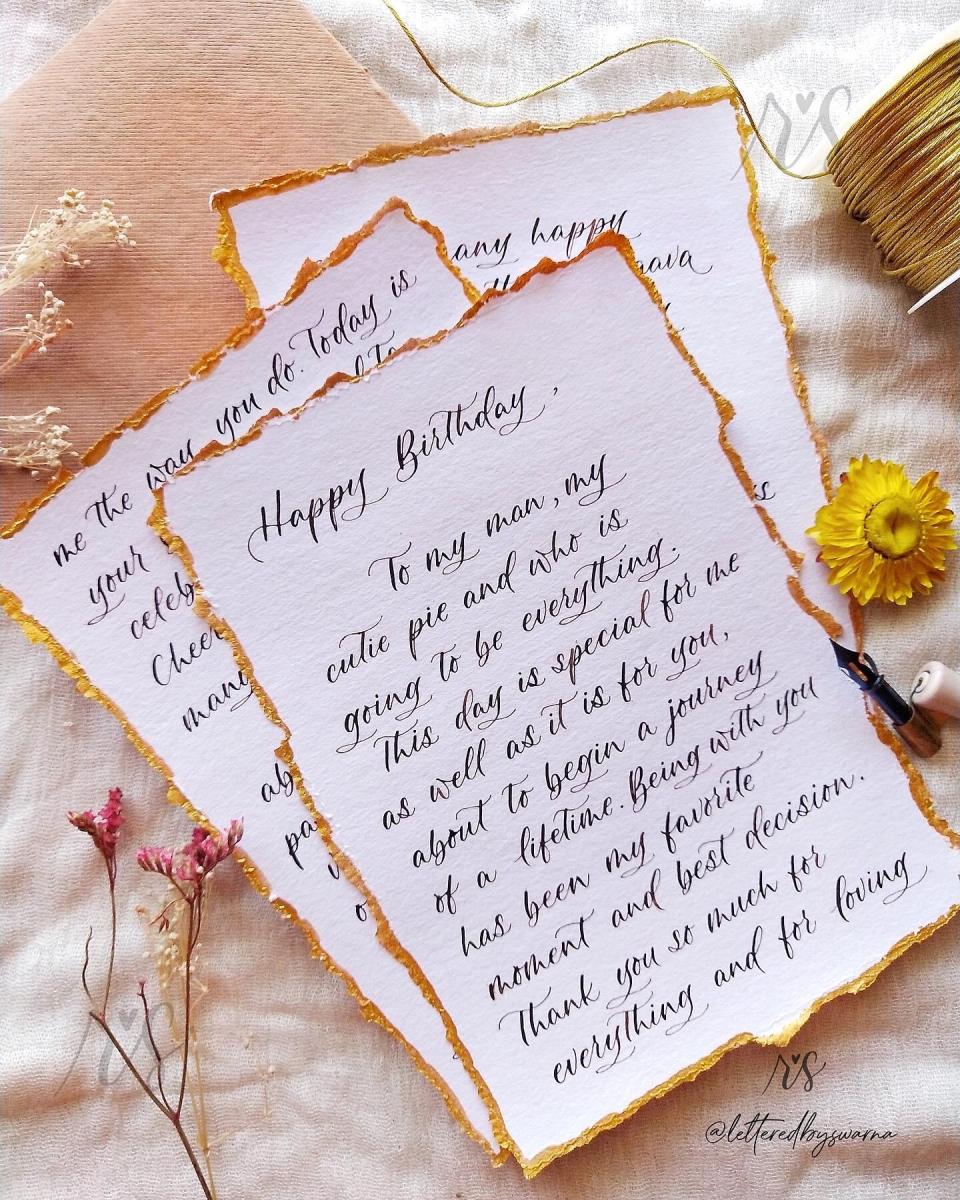 any happy
me the way you do. Today is
your
many
Happy Birthday,
To my man, my
cutie pie and who is
going to be everything.
This day is special for me
as well as it is for you,
about to begin a journey
of a lifetime. Being with you
has been my favorite
moment and best decision.
Thank you so much for
everything and for loving
rs
rs
rs
@letteredbyswarna